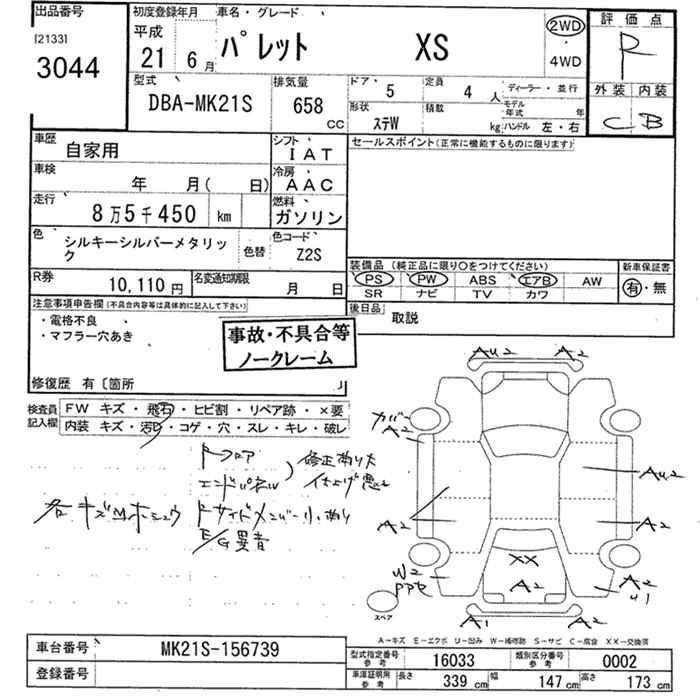 出品番号
[2133]
3044
初度登録年月
平成
21年 6月
車名・グレード
パレット XS
2WD
・
4WD
評価点
R
外装 内装
C B
型式
DBA-MK21S
排気量
658
CC
ドア・
5
定員
4 人
ディーラー・並行
形状
ステW
積載
kg
モデル
年式 年
ハンドル 左・右
車歴
自家用
シフト
IAT
セールスポイント(正常に機能するものに限ります)
車検
年 月( 日)
冷房
AAC
走行
8万5千450 km
燃料
ガソリン
色
シルキーシルバーメタリック
色替
色コード
Z2S
装備品(純正品に限り○をつけてください)
新車保証書
PS PW ABS エアB AW
SR ナビ TV カワ
有・無
R券
10,110円
名変通知期限
月 日
後日品
取説
注意事項申告欄(不具合内容等は具体的に記入して下さい)
・電格不良
・マフラー穴あき
事故・不具合等
ノークレーム
修復歴 有〔箇所 〕
検査員
記入欄
FW キズ・飛石・ヒビ割・リペア跡・×要
内装 キズ・汚れ・コゲ・穴・スレ・キレ・破レ
Rフロア
エンドパネル
修正あり大
仕上げ悪
各キズMホシュウ
Rサイドメンバー小あり
E/G異音
AU2 A2
カバー
A2
AU2
A2
A2
W2
XX
A2
A2
U1
A1
A2
スペア
A-キズ E-エクボ U-凹み W-補修跡 S-サビ C-腐食 XX-交換済
車台番号
MK21S-156739
登録番号
型式指定番号
参考
16033
類別区分番号
参考
0002
車庫証明用
参考
長さ 339 cm
幅 147 cm
高さ 173 cm